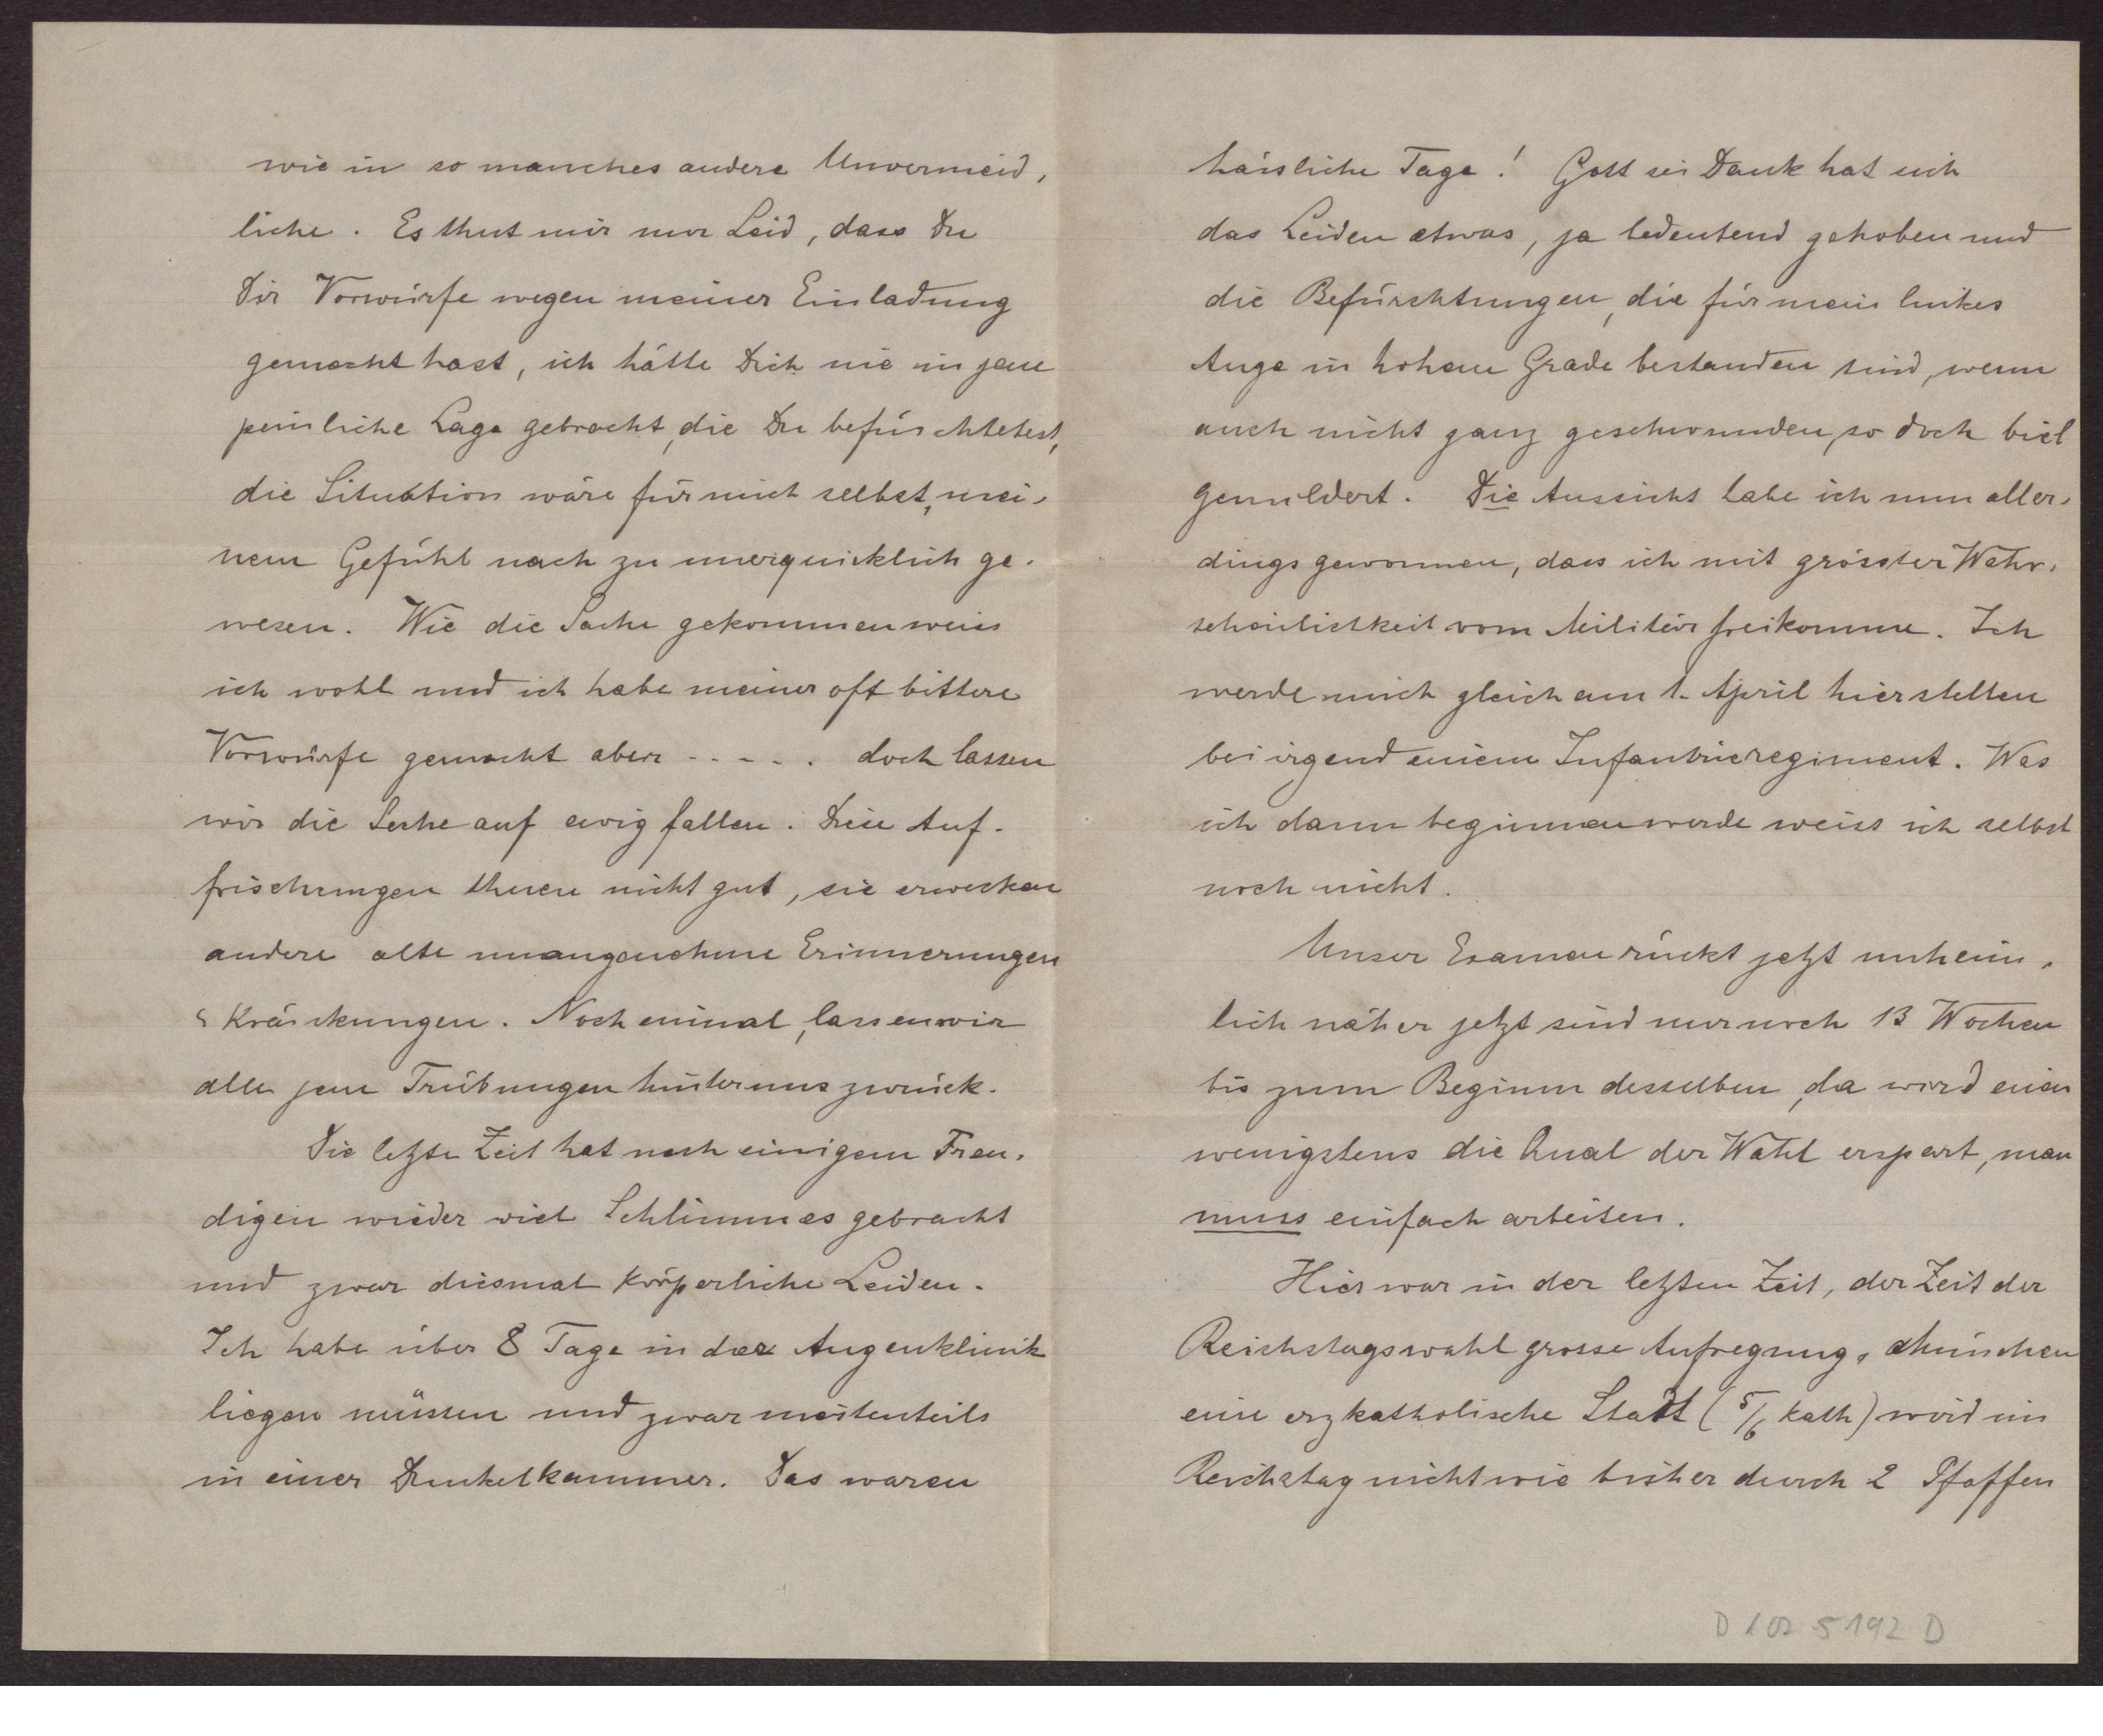 wie in so manches andere Unvermeid-
liche. Es thut mir nur Leid, dass Du
Dir Vorwürfe wegen meiner Einladung
gemacht hast, ich hätte Dich nie in jene
peinliche Lage gebracht, die Du befürchtetest,
die Situation wäre für mich selbst, mei-
nem Gefühl nach zu unerquicklich ge-
wesen. Wie die Sache gekommen weiss
ich wohl und ich habe meiner oft bittere
Vorwürfe gemacht aber - - - - . doch lassen
wir die Sache auf ewig fallen. Diese Auf-
frischungen thuen nicht gut, sie erwecken
andere alte unangenehme Erinnerungen
& Kränkungen. Noch einmal, lassen wir
alle jene Trübungen hinter uns zurück.
Die letzte Zeit hat nach einigem Freu-
digen wieder viel Schlimmes gebracht
und zwar diesmal körperliche Leiden.
Ich habe über 8 Tage in der Augenklinik
liegen müssen und zwar meistenteils
in einer Dunkelkammer. Das waren
hässliche Tage! Gott sei Dank hat sich
das Leiden etwas, ja bedeutend gehoben und
die Befürchtungen, die für mein linkes
Auge in hohem Grade bestanden sind, wenn
auch nicht ganz geschwunden, so doch viel
gemildert. Die Aussicht habe ich nun aller-
dings gewonnen, dass ich mit grösster Wahr-
scheinlichkeit vom Militär freikomme. Ich
werde mich gleich am 1. April hier stellen
bei irgend einem Infantrieregiment. Was
ich dann beginnen werde weiss ich selbst
noch nicht.
Unser Examen rückt jetzt unheim-
lich näher jetzt sind nur noch 13 Wochen
bis zum Beginn desselben, da wird einem
wenigstens die Qual der Wahl erspart, man
muss einfach arbeiten.
Hier war in der letzten Zeit, der Zeit der
Reichstagswahl grosse Aufregung, München
eine erzkatholische Stadt (5/6 kath) wird im
Reichstag nicht wie bisher durch 2 Pfaffen
D 102 5192 D